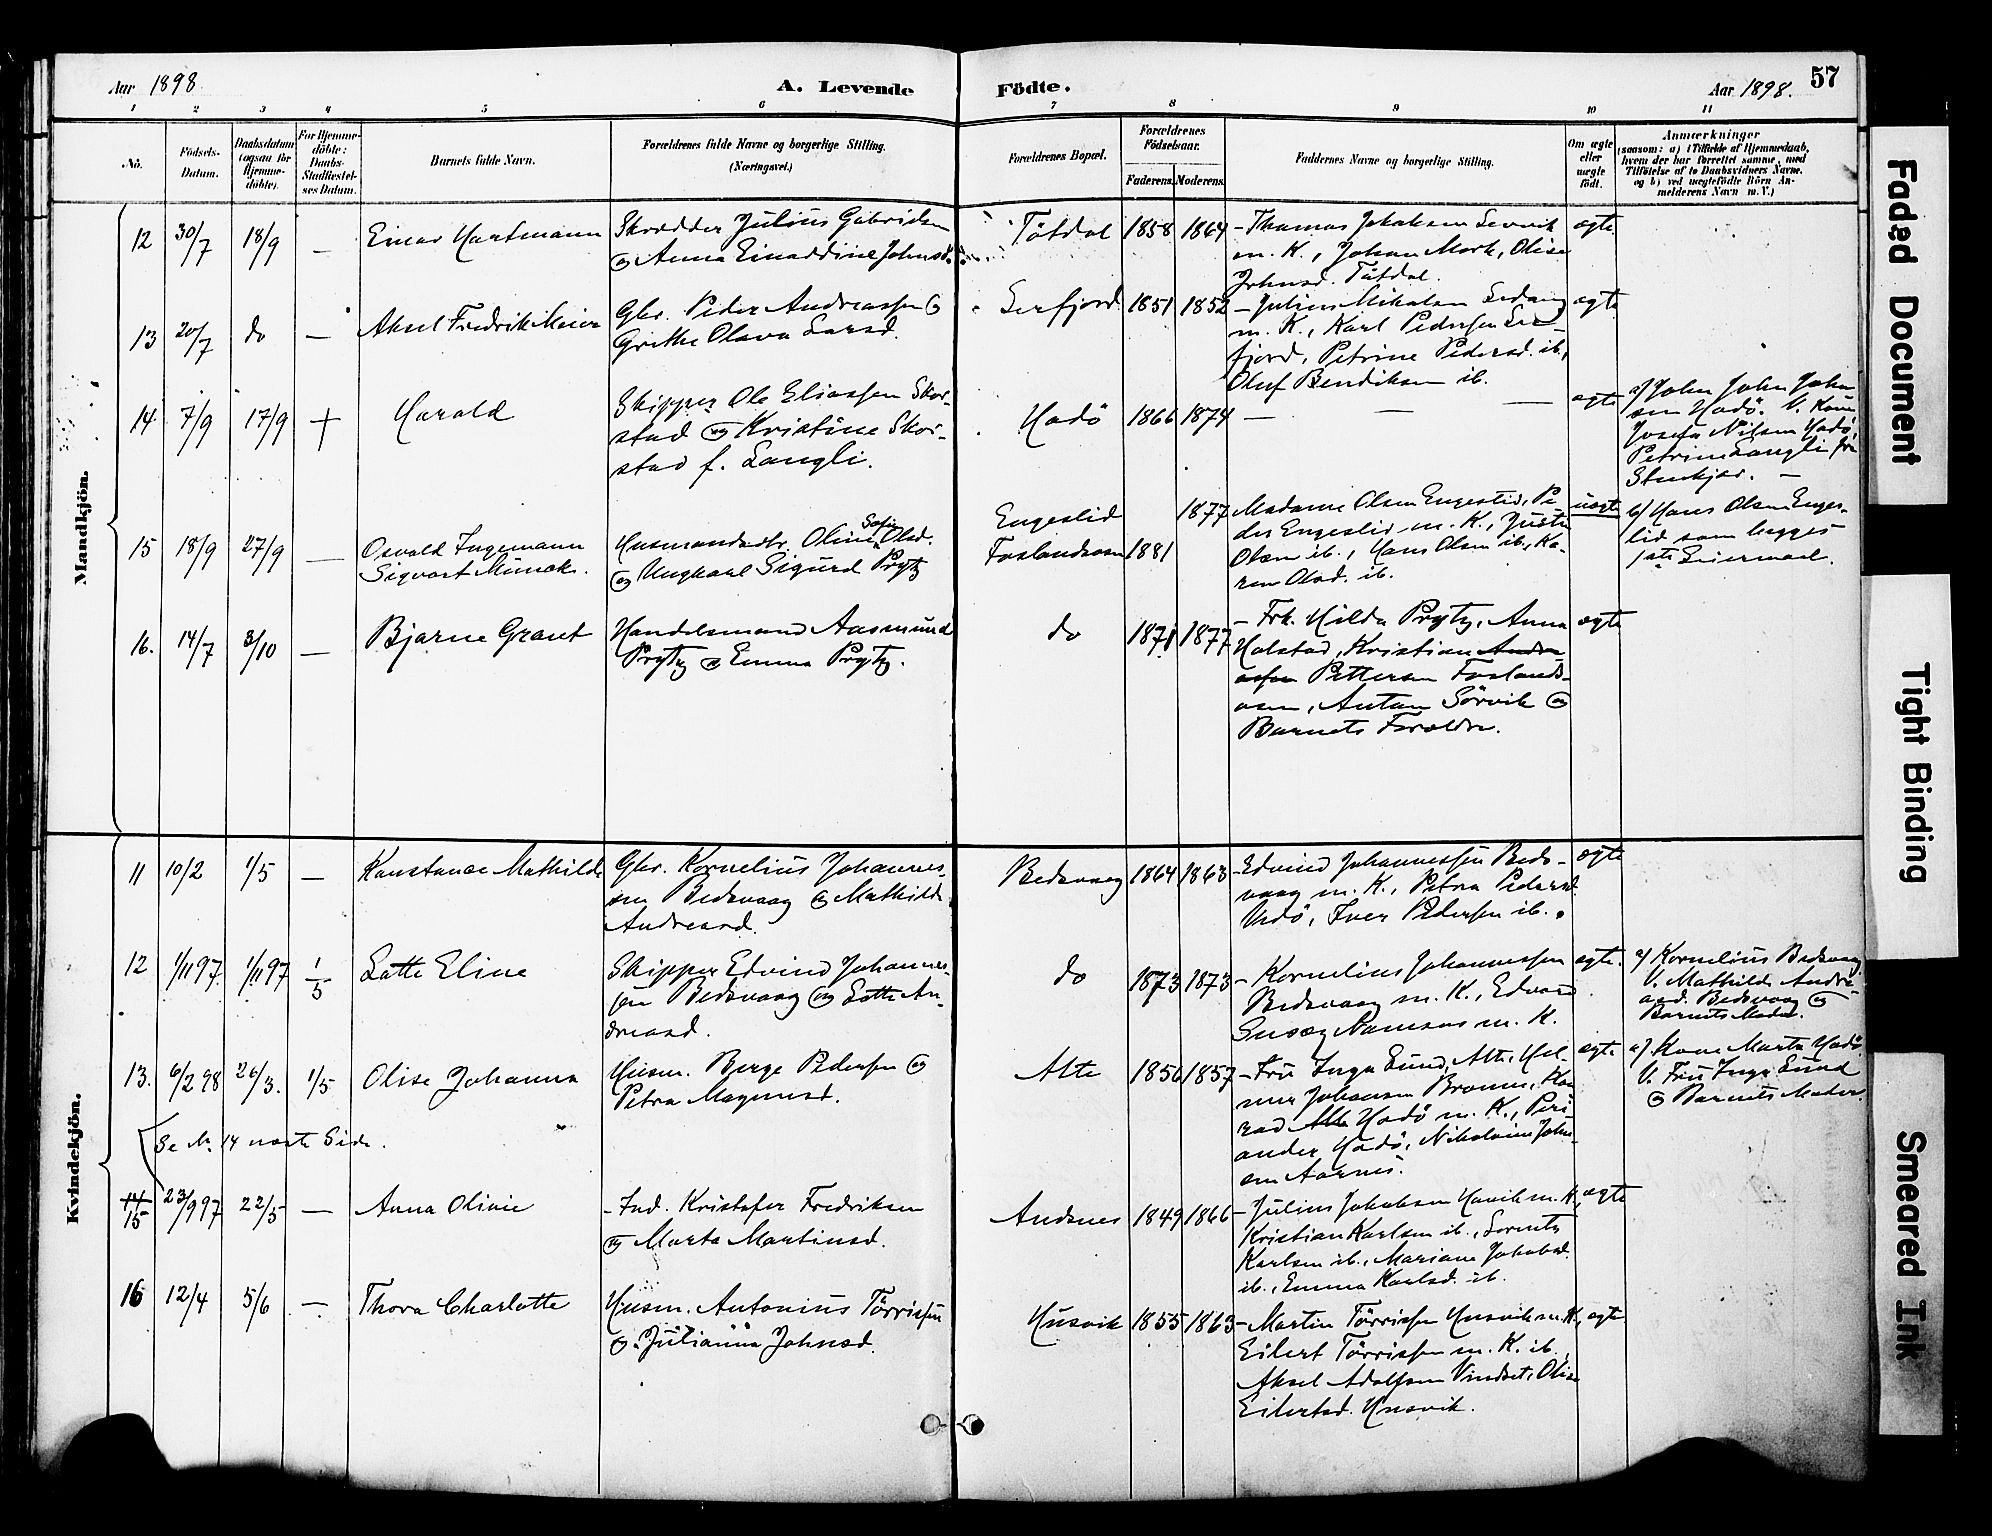 Aar 1898. A. Levende Födte. Aar 1898. 57
1 2 3 4 5 6 7 8 9 10 11
No. Födsels-Datum. Daabsdatum (ogsaa for Hjemme-døbte). For Hjemme-døbte: Daabs-Stadfæstel-ses Datum. Barnets fulde Navn. Forældrenes fulde Navne og borgerlige Stilling. (Næringsvei.) Forældrenes Bopæl. Forældrenes Födselsaar. Faderens. Moderens. Faddernes Navne og borgerlige Stilling. Om ægte eller uægte født. Anmærkninger (saasom: a) i Tilfælde af Hjemmedaab, hvem der har forrettet samme, med Tilföielse af to Daabsvidners Navne, og b) ved uægtefödte Börn An-melderens Navn m. V.)
Mandkjön.
12 30/7 18/9 — Einar Hartmann Skrædder Julius Gabrielsen
og Anna Einaddine Johnsd. Tötdal 1858 1864 - Thomas Jakobsen
m. K., Johan Mork, Olise
Johnsd. Tötdal. ægte
13 20/7 do — Aksel Fredrik Meier Gbr. Peder Andreassen og
Grethe Olava Larsd. Serfjord 1851 1852 - Julius Mikalsen
m. K., Karl Pedersen Ser-
fjord, Petrine Pedersd. ib.,
Oluf Bendiksen ib. ægte
14 7/9 17/9 + Harald Skipper Ole Eliassen Skor-
stad og Kristine Skor-
stad f. Langli. Hadö 1866 1874 — — — ægte a) John John John-
sen Hadö. V. Kone
Josefa Nilsen Hadö,
Petrine Langli fra
Stenkjær. —
15 18/9 27/9 — Osvald Ingemann
Sigvart Husmandsdtr. Oline Sofie Olsd.
og Ungkarl Sigurd Prytz Engeslid
Foslandsosen 1881 1877 Madame Olsen Engeslid, Pe-
der Engeslid m. K.,
Olsen ib., Hans Olsen ib., Ka-
ren Olsd. ib. uægte b) Hans Olsen Enges-
lid som begges
1ste Leiermaal.
16. 14/7 3/10 — Bjarne Grant Handelsmand Aasmund
Prytz og Emma Prytz. do 1871 1877 - Frk. Hilda Prytz, Anna
Holstad, Kristian Andre-
assen Pettersen Foslands-
osen, Anton Sörvik og
Barnets Forældre. ægte
Kvindekjön.
11 10/2 1/5 — Konstance Mathilde Gbr. Kornelius Johannes-
sen Bedsvaag og Mathilde
Andreasd. Bedsvaag 1864 1863 - Edvind Johannessen Beds-
vaag m. K., Petra Pedersd.
Hadö, Iver Pedersen ib. ægte
12 1/11 97. 1/11 97 1/5 Lotte Eline Skipper Edvind Johannes-
sen Bedsvaag og Lotte An-
dreasd. do 1873 1873 - Kornelius Johannessen
Bedsvaag m. K., Edvard
Namsos m. K. ægte. a) Kornelius Bedsvaag
V. Mathilde Andre-
asd. Bedsvaag og
Barnets Moder.
13. 6/2 98 26/3. 1/5 Olise Johanna Husm. Berge Pedersen og
Petra Magnusd. Alte 1856 1857 - Fru Inga Lund, Alte, Hel-
mer Johansen Bromus, Kon-
rad Alte Hadö m. K., Peri-
ander Hadö, Nikolaine John-
sen Aarnes. ægte a) Kone Marta Hadö.
V. Fru Inga Lund
og Barnets Moder.
Se No. 14 næste Side.
14
15 23/9 97 22/5 — Anna Olivie - Ind. Kristofer Fredriksen
og Marta Martinsd. Andsnes 1849 1866 - Julius Jakobsen Havik m. K.,
Kristian Karlsen ib., Lorents
Karlsen ib., Mariane Jakobsd.
ib., Emma Karlsd. ib. ægte
16 12/4 5/6 — Thora Charlotte Husm. Antonius Törrissen
og Julianna Johnsd. Husvik 1855 1863 - Martin Törrissen Husvik m. K.,
Eilert Törrissen m. K. ib.,
Aksel Adolfsen Vindset, Olise
Eilertsd. Husvik. ægte
Faded Document
Tight Binding
Smeared Ink